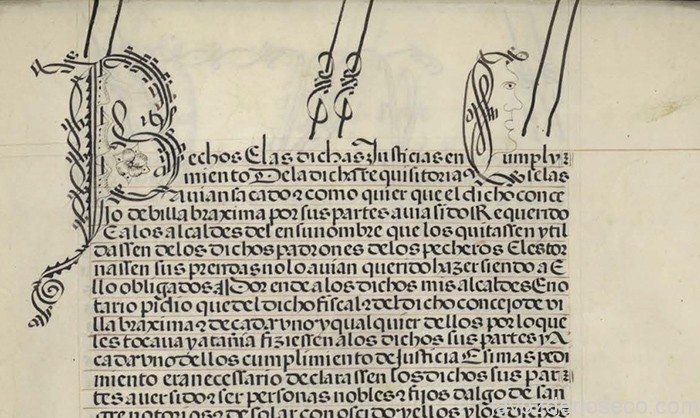 Pechos E las dichas Justicias en cumply
miento De la dichas Requisitorias Gelas
avian sacado z como quier que el dicho conce
Jo de billa braxima por sus partes avia sido Requerido
E a los alcaldes del en su nombre que los quitassen y til
dassen de los dichos padrones de los pecheros E les tor
nassen sus prendas no lo avian querido hazer siendo a E
llo obligados Por ende a los dichos mis alcaldes E no
tario pidio que del dicho fiscal z del dicho concejo de vi
lla braxima z de cada vno y qual quier dellos por lo que
les tocava y atañia fiziessen a los dichos sus partes y A
cada vno dellos cumplimiento de Justicia E si mas pedi
miento era necessario declarassen los dichos sus par
tes aver sido z ser personas nobles z fijos dalgo de san
gre notorios z de solar conoscido y ellos y los